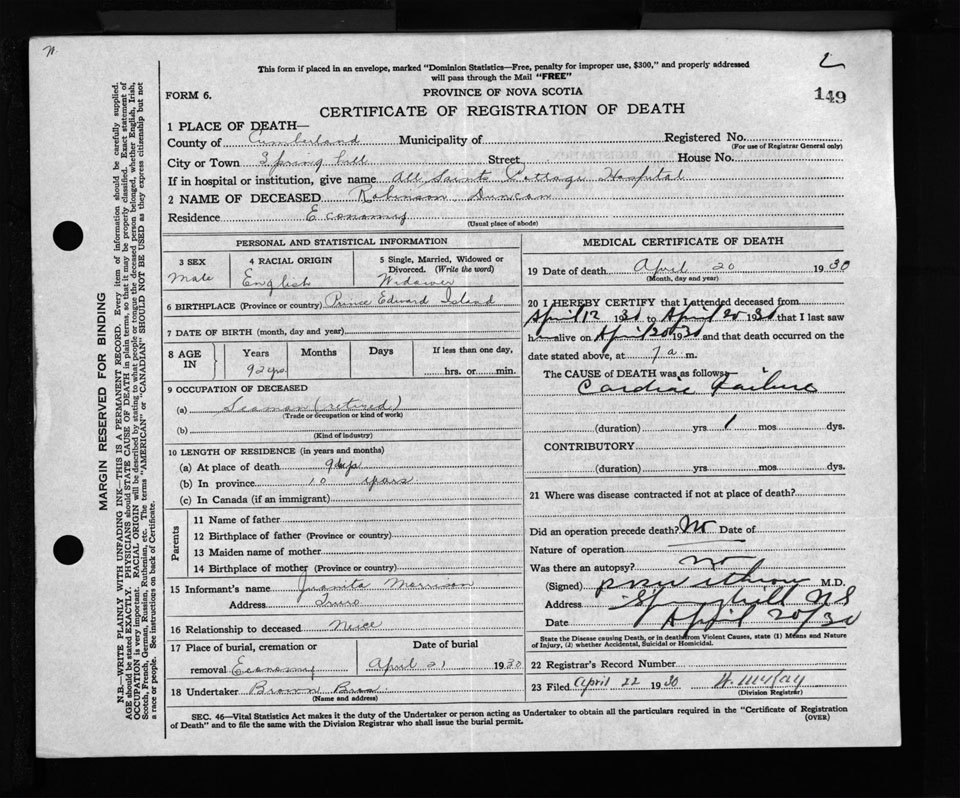 N.
2
This form if placed in an envelope, marked "Dominion Statistics—Free, penalty for improper use, $300," and properly addressed
will pass through the Mail "FREE"
FORM 6.
PROVINCE OF NOVA SCOTIA
149
CERTIFICATE OF REGISTRATION OF DEATH
MARGIN RESERVED FOR BINDING
N.B.—WRITE PLAINLY WITH UNFADING INK—THIS IS A PERMANENT RECORD. Every item of information should be carefully supplied.
AGE should be stated EXACTLY. PHYSICIANS should STATE CAUSE OF DEATH in plain terms, so that it may be properly classified. Exact statement of
OCCUPATION is very important. RACIAL ORIGIN will be described by stating to what people or tongue the deceased person belonged, whether English, Irish,
Scotch, French, German, Russian, Ruthenian, etc. The terms "AMERICAN" or "CANADIAN" SHOULD NOT BE USED as they express citizenship but not
a race or people. See instructions on back of Certificate.
1 PLACE OF DEATH—
County of Cumberland Municipality of Registered No.
(For use of Registrar General only)
City or Town Spring hill Street House No.
If in hospital or institution, give name All Saints Cottage Hospital
2 NAME OF DECEASED Robinson, Duncan
Residence Economy
(Usual place of abode)
PERSONAL AND STATISTICAL INFORMATION
3 SEX 4 RACIAL ORIGIN 5 Single, Married, Widowed or
Divorced. (Write the word)
Male English Widower
6 BIRTHPLACE (Province or country) Prince Edward Island
7 DATE OF BIRTH (month, day and year)
8 AGE IN Years Months Days If less than one day,
92 yrs. hrs. or min.
9 OCCUPATION OF DECEASED
(a) Seaman (retired)
(Trade or occupation or kind of work)
(b)
(Kind of industry)
10 LENGTH OF RESIDENCE (in years and months)
(a) At place of death
(b) In province 10 years
(c) In Canada (if an immigrant)
Parents
11 Name of father
12 Birthplace of father (Province or country)
13 Maiden name of mother
14 Birthplace of mother (Province or country)
15 Informant's name Juanita Morrison
Address Truro
16 Relationship to deceased Neice
17 Place of burial, cremation or Date of burial
removal Economy April 21 1930
18 Undertaker Brown Bros
(Name and address)
MEDICAL CERTIFICATE OF DEATH
19 Date of death April 20 1930
(Month, day and year)
20 I HEREBY CERTIFY that I attended deceased from
April 12 1930 to April 20 1930 that I last saw
h alive on April 20 1930 and that death occurred on the
date stated above, at 7 a m.
The CAUSE of DEATH was as follows
Cardiac Failure
(duration) yrs 1 mos dys.
CONTRIBUTORY
(duration) yrs. mos. dys.
21 Where was disease contracted if not at place of death?
Did an operation precede death? No Date of
Nature of operation
Was there an autopsy? No
(Signed) M.D.
Address Springhill NS
Date April 20/30
State the Disease causing Death, or in deaths from Violent Causes, state (1) Means and Nature
of Injury, (2) whether Accidental, Suicidal or Homicidal.
22 Registrar's Record Number
23 Filed April 22 1930
(Division Registrar)
SEC. 46—Vital Statistics Act makes it the duty of the Undertaker or person acting as Undertaker to obtain all the particulars required in the "Certificate of Registration
of Death" and to file the same with the Division Registrar who shall issue the burial permit.
(OVER)